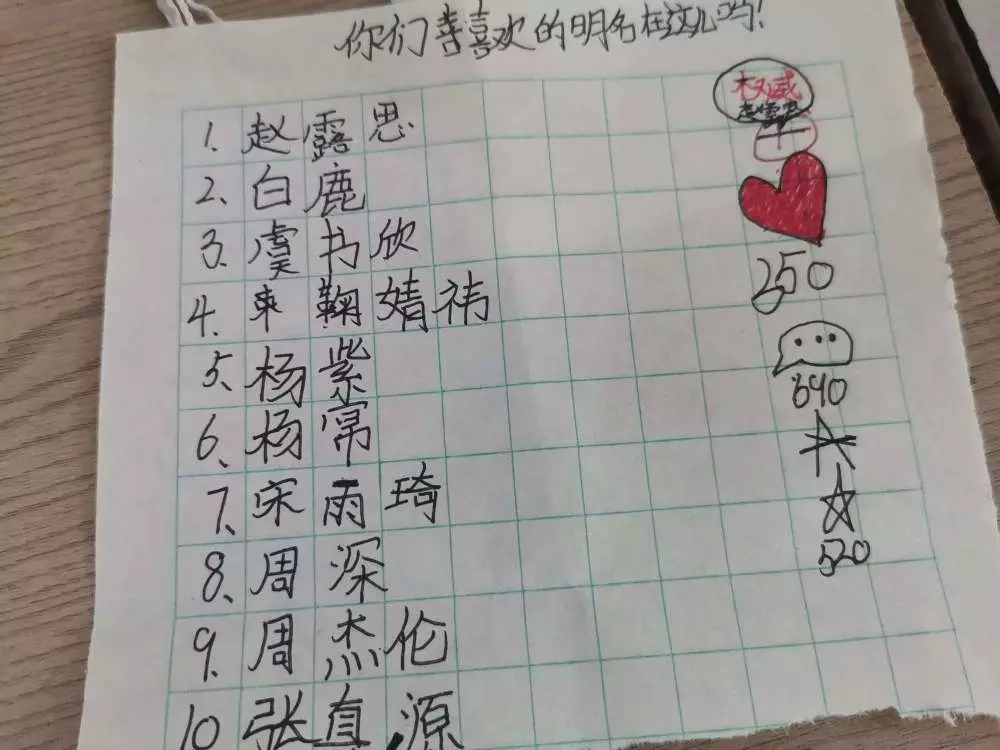 你们喜喜欢的明名在这儿吗！
1. 赵露思
2. 白鹿
3. 虞书欣
4. 鞠婧祎
5、杨紫
6、杨幂
7、宋雨琦
8、周深
9、周杰伦
10 张真源
权威
赵露思
+
250
690
520